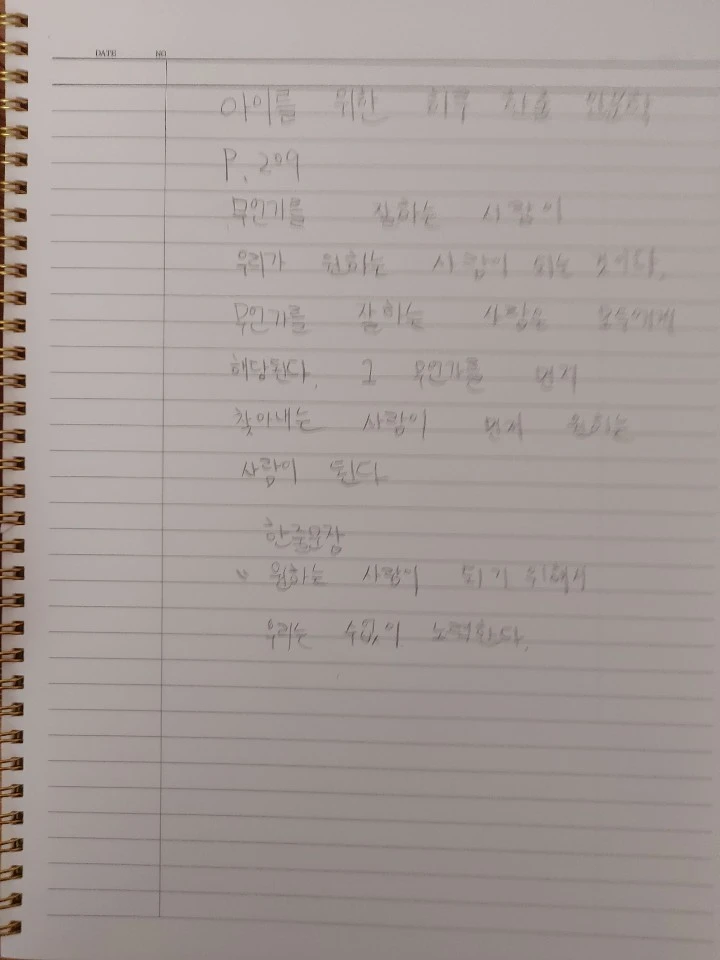 DATE NO.
아이를 위한 하루 한줄 인문학
P. 209
무언가를 잘하는 사람이
우리가 원하는 사람이 되는 것이다.
무언가를 잘하는 사람은 모두에게
해당된다. 그 무언가를 먼저
찾아내는 사람이 먼저 원하는
사람이 된다
한줄문장
원하는 사람이 되기 위해서
우리는 수없이 노력한다.